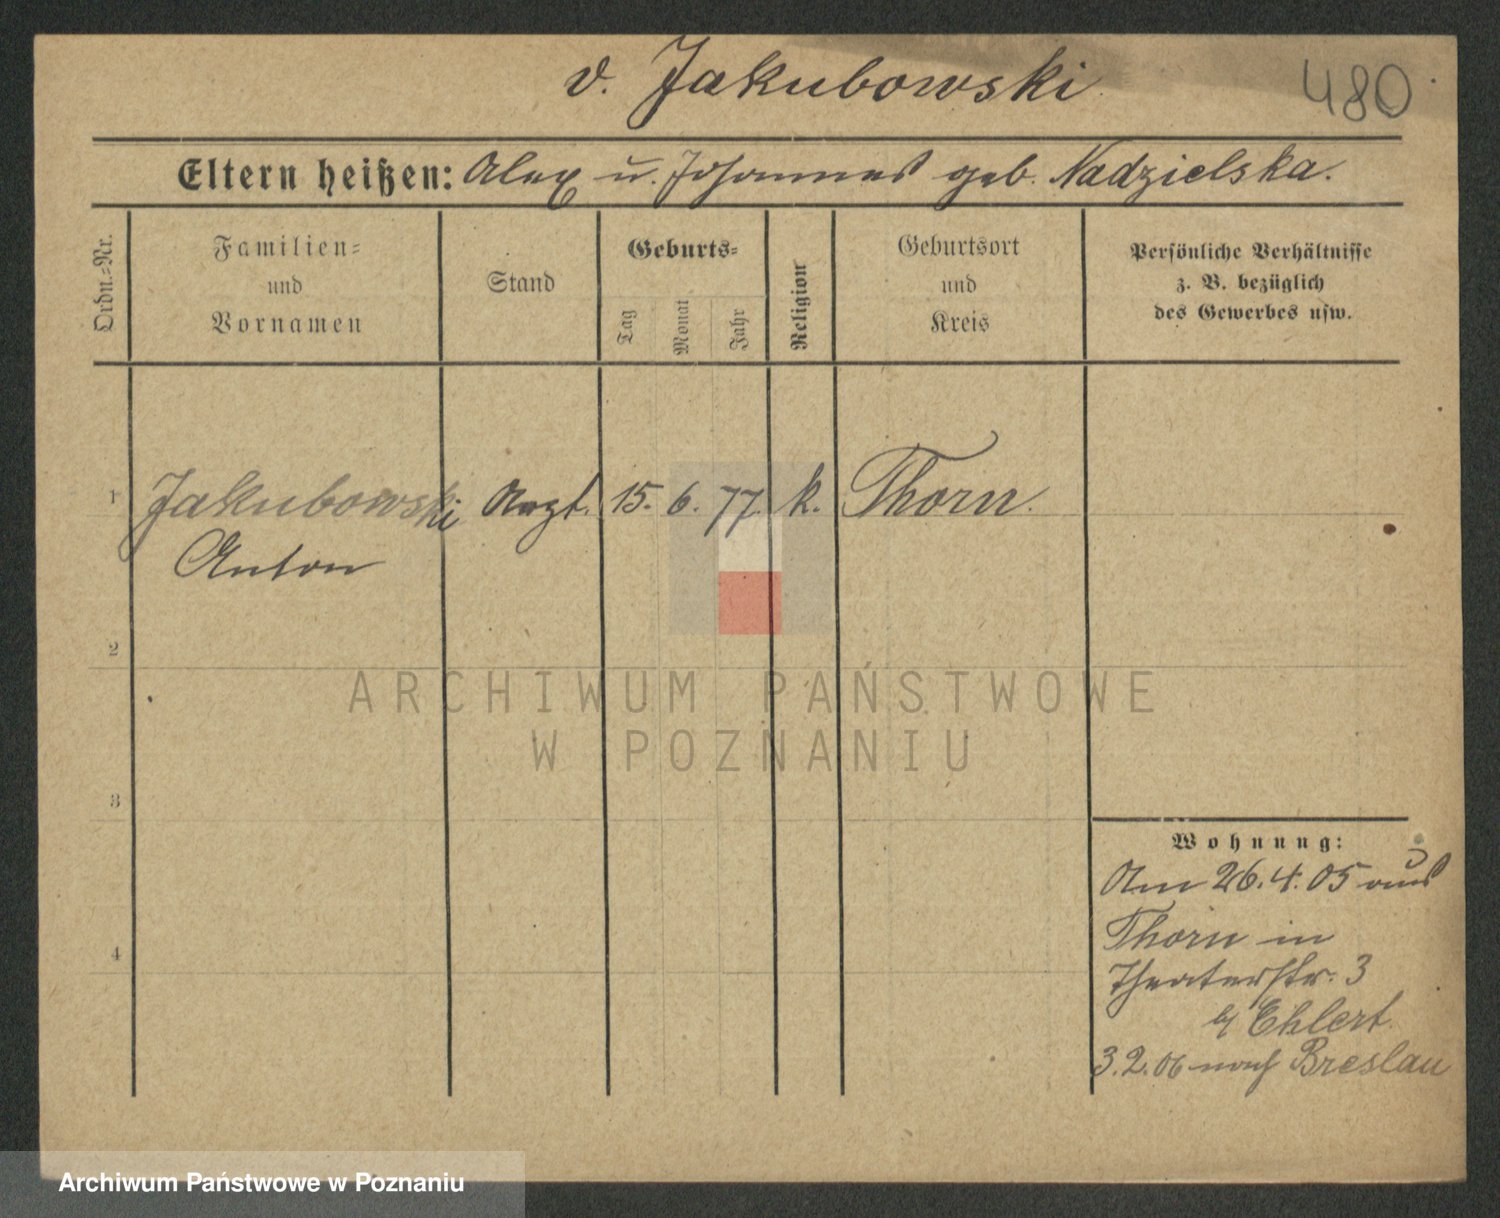 v. Jakubowski
480
Eltern heißen: Alex u. Johanna geb. Nadzielska.
Ordn.-Nr.
Familien- und Vornamen
Stand
Geburts-
Tag
Monat
Jahr
Religion
Geburtsort und Kreis
Persönliche Verhältnisse
z. B. bezüglich
des Gewerbes usw.
1 Jakubowski Arzt. 15. 6. 77. k. Thorn.
Anton
2
3
4
Wohnung:
Am 26.4.05 aus
Thorn in
Theaterstr. 3
b/ Ehlert.
3.2.06 nach Breslau
ARCHIWUM PAŃSTWOWE
W POZNANIU
Archiwum Państwowe w Poznaniu